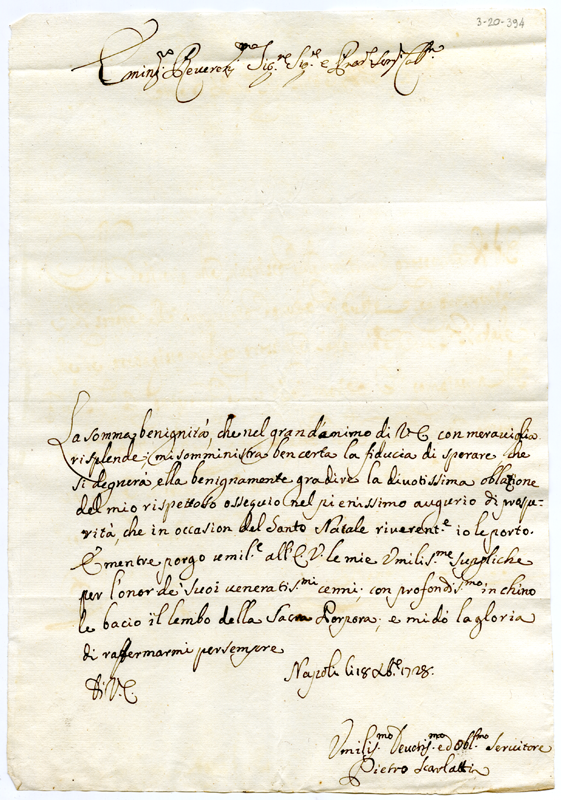 3-20-394
Emin.mo e Reverend.mo Sig.re Sig.re e Pron
La somma benignità, che nel grand'animo di V.E. con meraviglia
risplende; mi somministra ben certa la fiducia di sperare che
si degnerà ella benignamente gradire la diuotissima oblazione
del mio rispettoso ossequio nel pienissimo augurio di prospe-
rità, che in occasion del Santo Natale riverent.e io le porto.
E mentre porgo umil.e all'E.V. le mie Vmilis.me suppliche
per l'onor de' suoi veneratis.mi cenni; con profondis.mo inchino
le bacio il lembo della Sacra Porpora; e mi dò la gloria
di raffermarmi per sempre
Di V.E. Napoli li 18 Xbre 1728.
Vmilis.mo Deuotis.mo ed Obl.mo Seruitore
Pietro Scarlatti